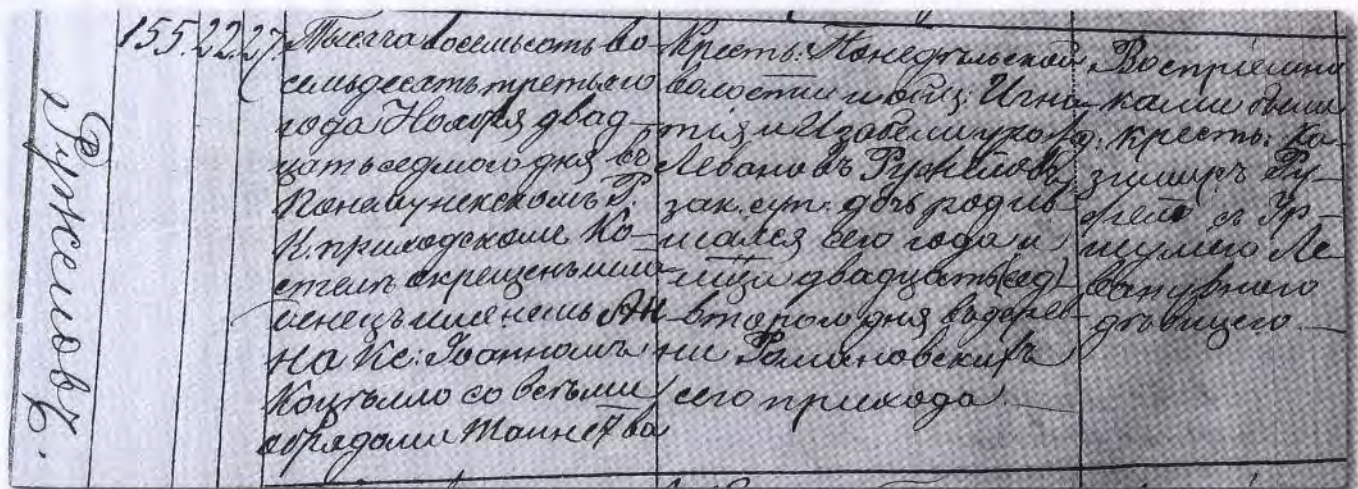 Ружеловъ.
155. 22. 27.
Тысяча восемьсотъ во-
семьдесятъ третьяго
года Ноября двад-
цать седмого дня въ
Р.
К. приходскомъ Ко-
стелѣ окрещенъ мла-
денецъ именемъ Ан-
на Кс: Іоанномъ
со всѣми
обрядами таинства
Кресть: Понедѣльской
волости Игна-
тія и Изабели
зак. суп. дочь родив-
шаяся сего года и
двадцать (сед)
второго дня въ дерев-
ни Романовскихъ
сего прихода
Воспріемни-
ками были
кресть: Ка-
зимиръ Ру-
жело съ Ур-
шулею Ле-
дѣвицею.